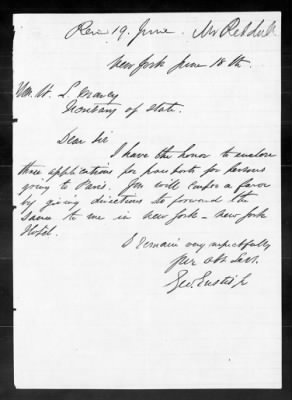 Rec 19. June. Mr Reddall
New York June 18th.
Wm H. L. Marcy
Secretary of State.
Dear Sir
I have the honor to enclose
three applications for passports for persons
going to Paris. You will confer a favor
by giving directions to forward the
same to me in New York - New York
Hotel.
I remain very respectfully
Your Obt Servt.
Geo. Eustis Jr